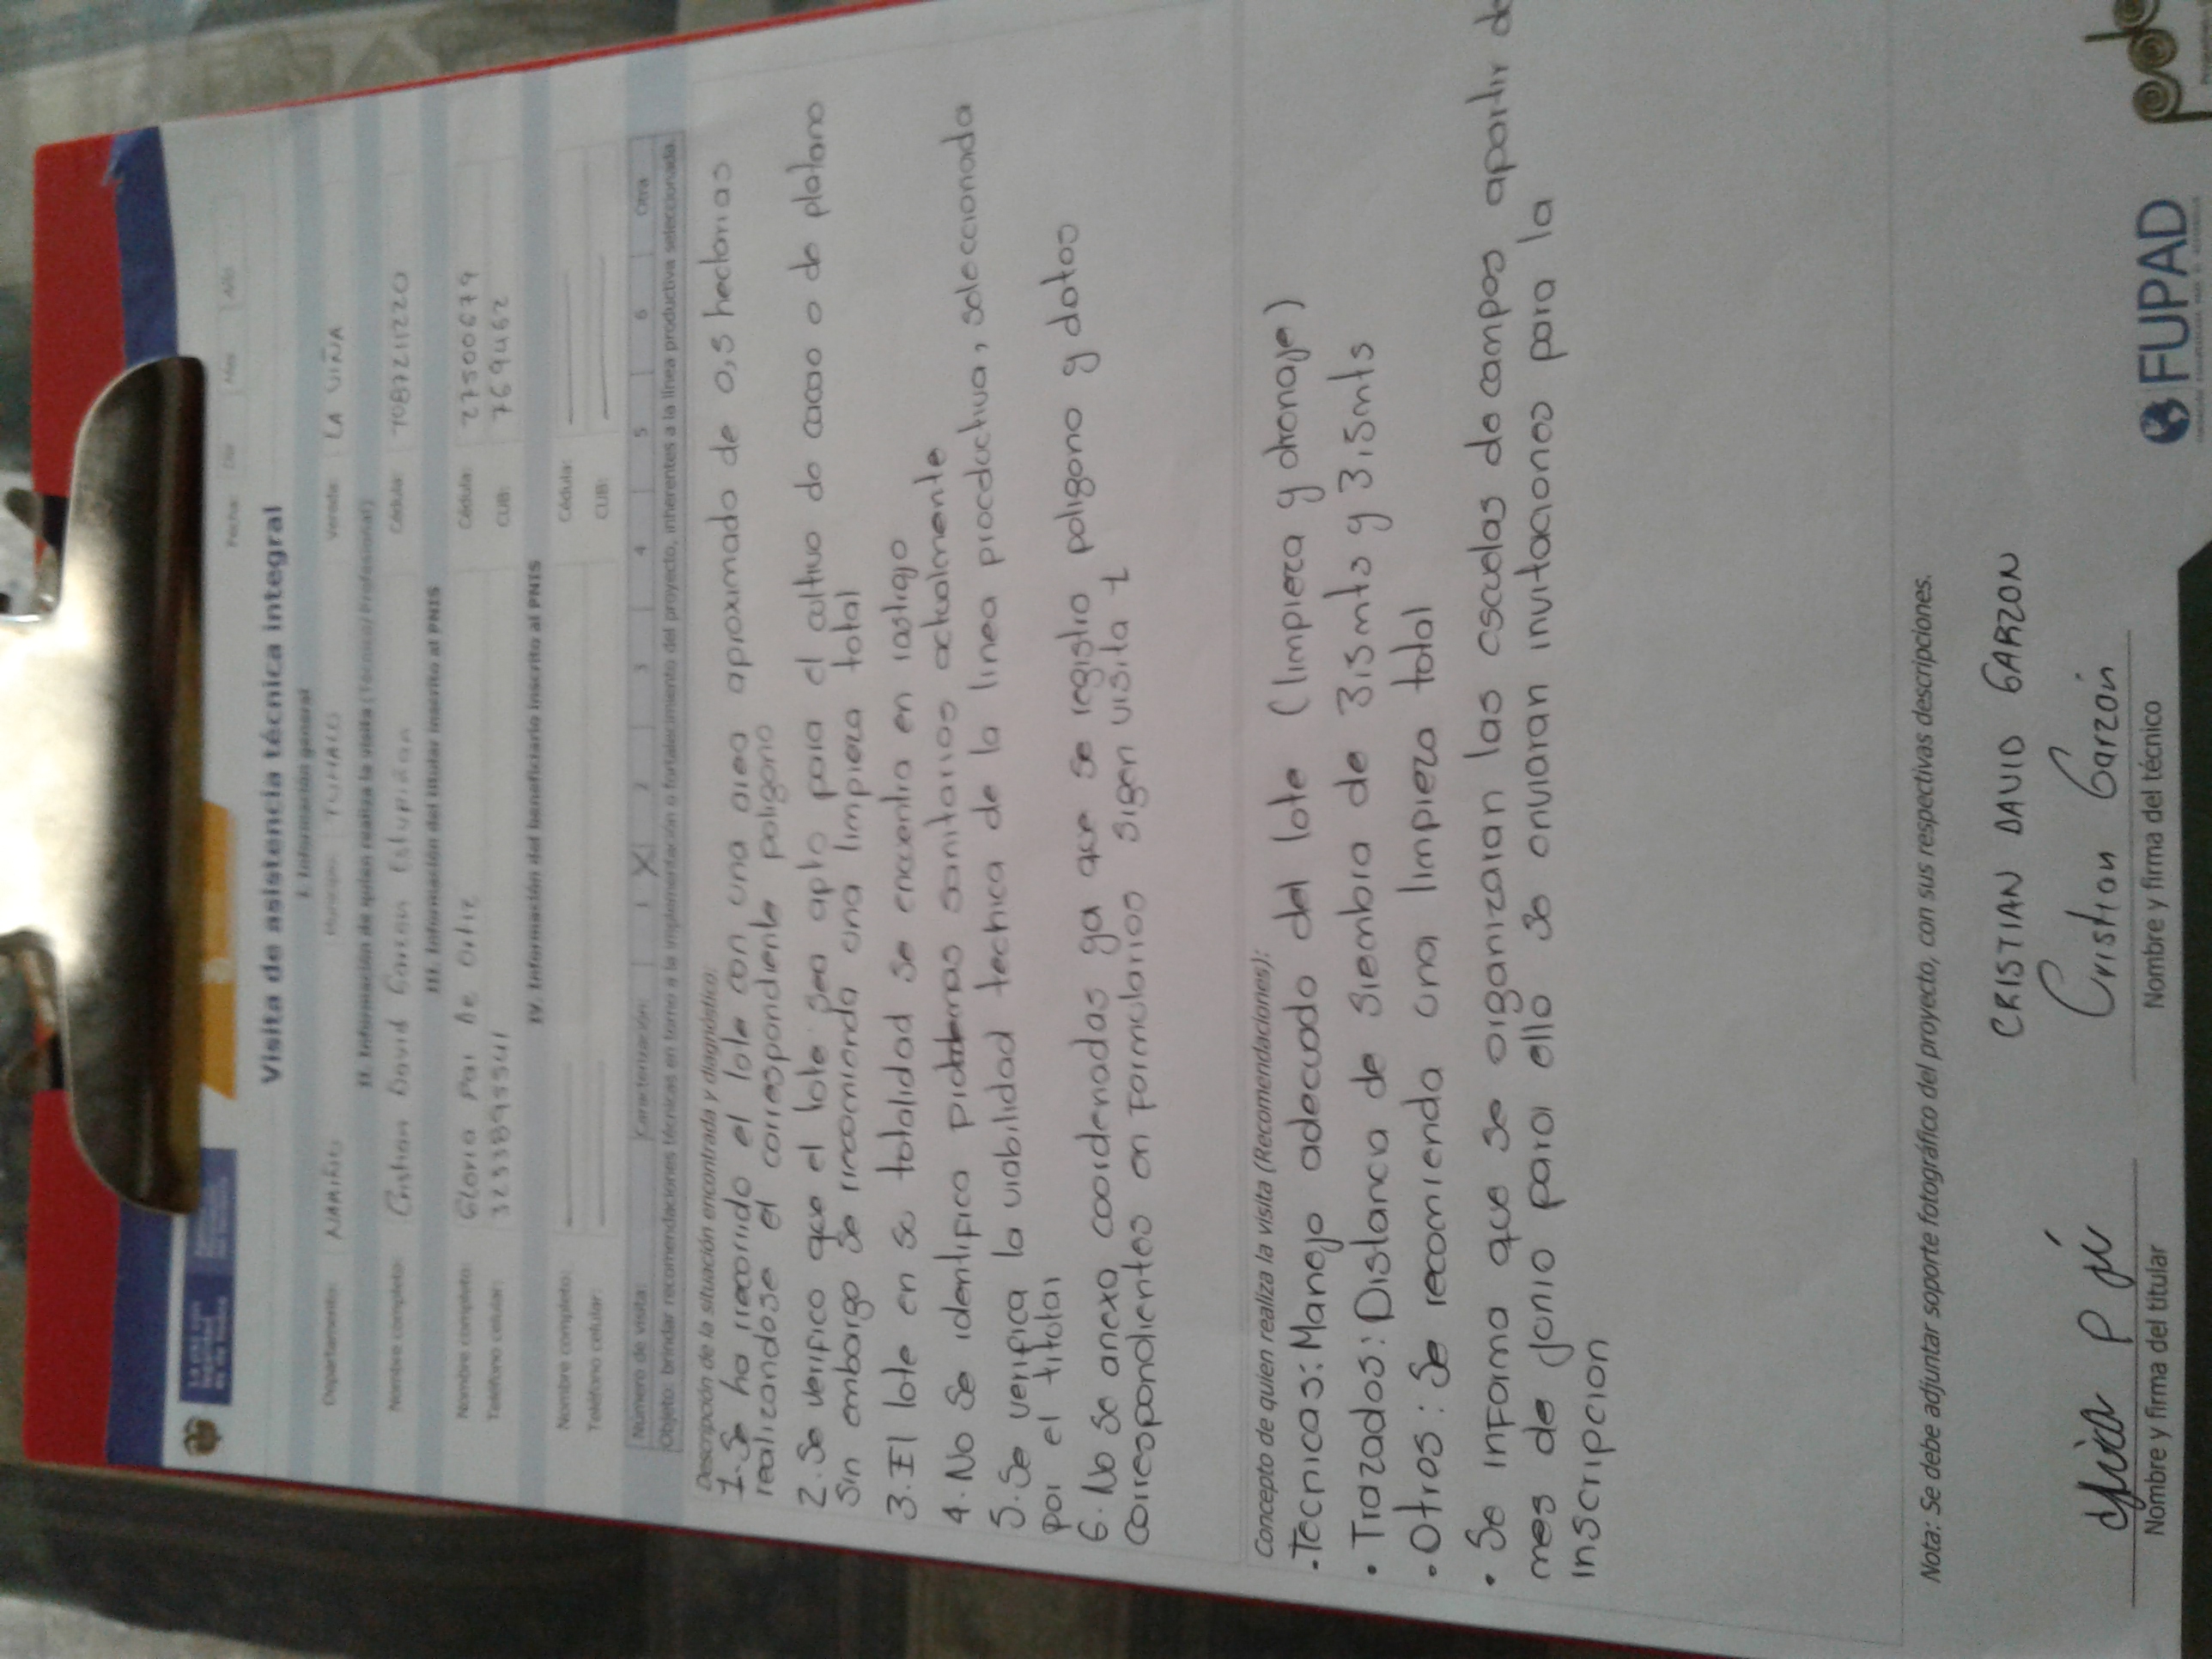 Visita de asistencia técnica integral
Fecha: Día Mes Año
I. Información general
Departamento: NARIÑO Municipio: TUMACO Vereda: LA VIÑA
II. Información de quien realiza la visita (Técnico/Profesional)
Nombre completo: Cristian David Garzon Estupiñan Cédula: 1087211220
III. Información del titular inscrito al PNIS
Nombre completo: Gloria Pai De Ortiz Cédula: 27500679
Teléfono celular: CUB: 769462
IV. Información del beneficiario inscrito al PNIS
Nombre completo: Cédula:
Teléfono celular: CUB:
Número de visita: Caracterización: 1 X 2 3 4 5 6 Otra
Objeto: brindar recomendaciones técnicas en torno a la implementación o fortalecimiento del proyecto, inherentes a la línea productiva seleccionada.
Descripción de la situación encontrada y diagnóstico:
1. Se ha recorrido el lote con una area aproximado de 0,5 hectarias
realizandose el correspondiente poligono
2. Se verifico que el lote sea apto para el cultivo de cacao o de platano
Sin embargo se recomienda una limpieza total
3. El lote en su totalidad se encuentra en rastrojo
4. No Se identifico problemas sanitarios actualmente
5. Se verifica la viabilidad technica de la linea productiva, seleccionada
por el titular
6. No se anexo coordenadas ya que se registro poligono y datos
correspondientes en formularios sigen visita 1
Concepto de quien realiza la visita (Recomendaciones):
• Tecnicas: Manejo adecuado del lote (limpieza y drenaje)
• Trazados: Distancia de siembra de 3,5 mts y 3,5 mts
• Otros: Se recomienda una limpieza total
• Se informa que se organizaran las escuelas de campos apartir de
mes de junio para ello se enviaran invitaciones para la
inscripcion
Nota: Se debe adjuntar soporte fotográfico del proyecto, con sus respectivas descripciones.
CRISTIAN DAVID GARZON
Cristian Garzón
Nombre y firma del titular Nombre y firma del técnico
FUPAD